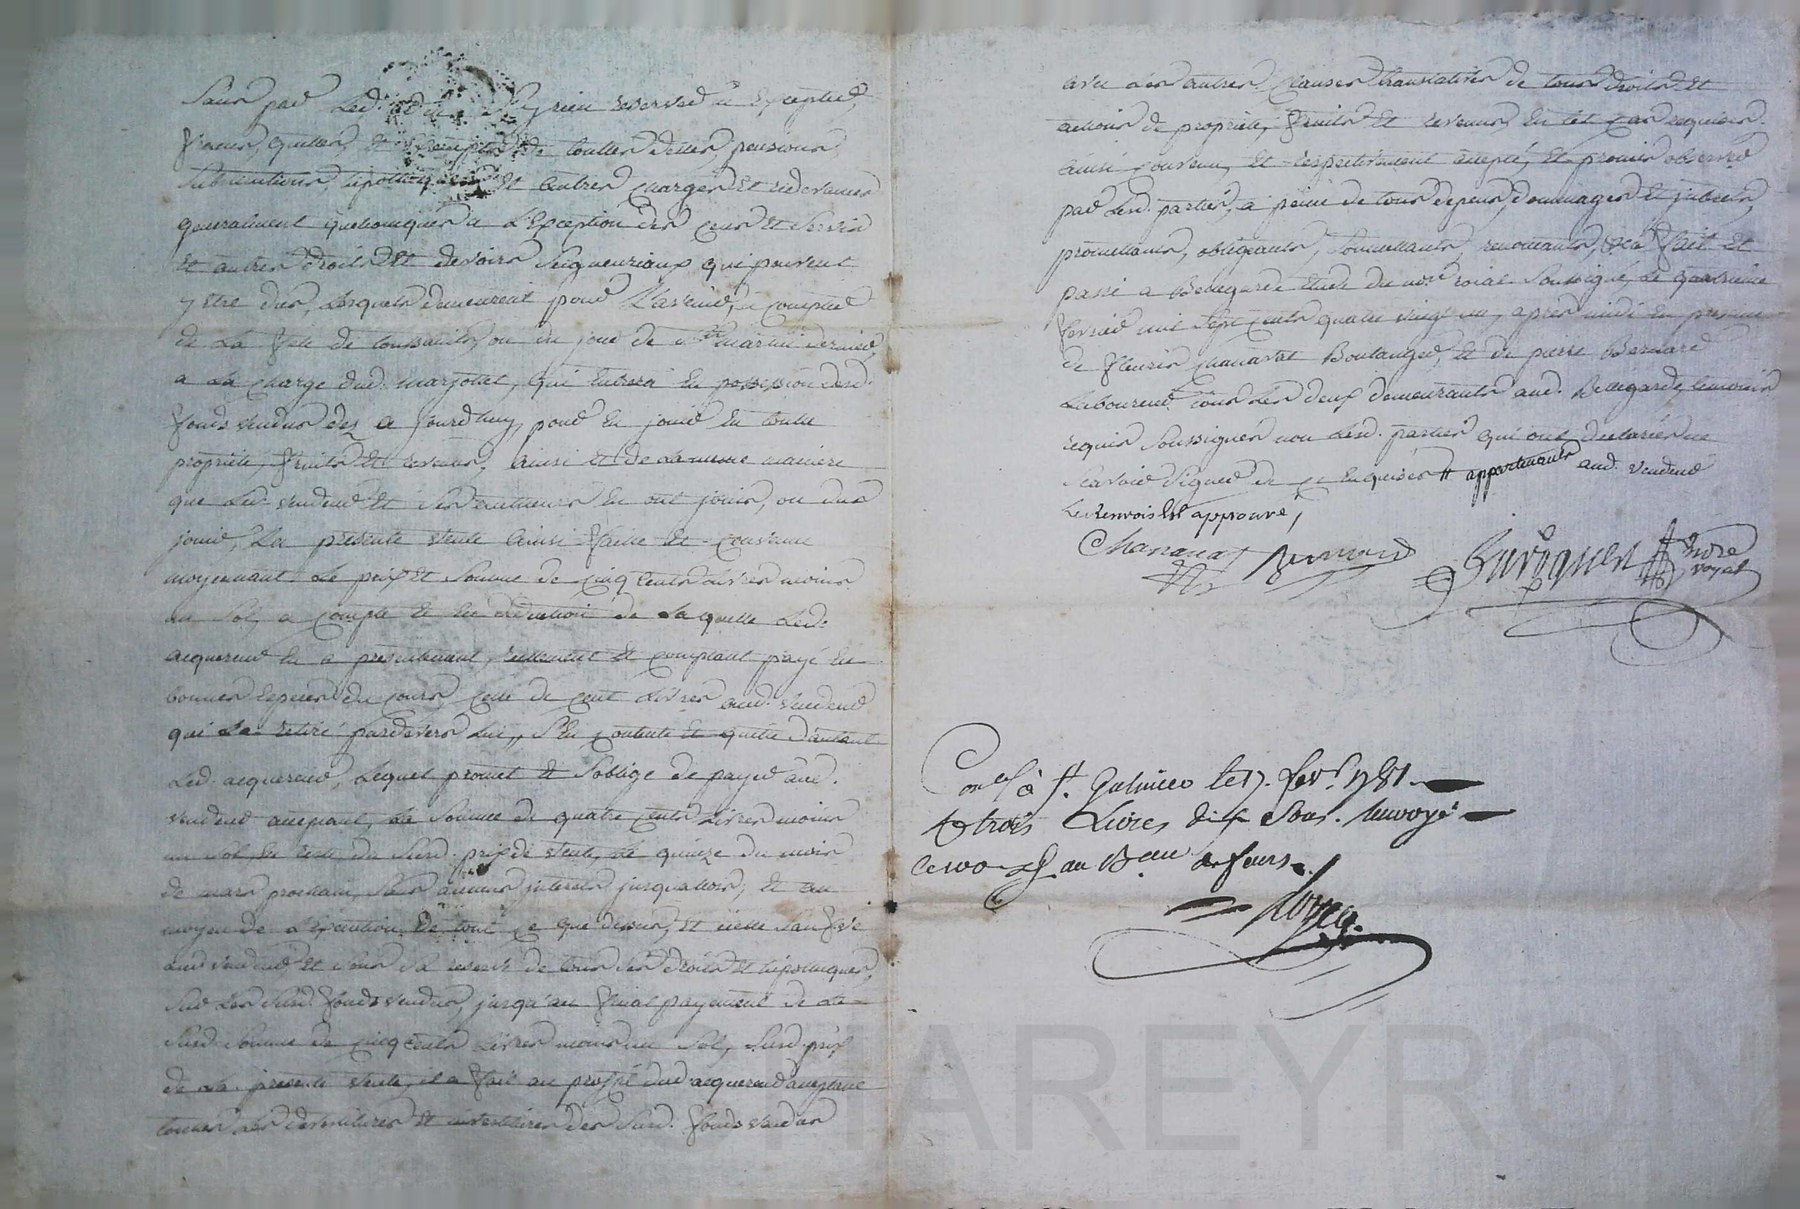 Sans par led. y rien reserver ni excepter,
francs, quittes et exempts de touttes dettes, pensions,
subventions, ipoteques et autres charges et redevances
generalment quelconques a l'Exception des cens et servis
et autres droits et devoirs seigneuriaux qui peuvent
y etre dus, lesquels demeurent pour l'avenir, a compter
de la fete de toussaints, ou du jour de st martin dernier,
a la charge dud. marjollet, qui entrera en possession desd.
fonds vendus dez a jourdhuy, pour en jouir en toutte
proprieté, fruits et revenus, ainsi et de la meme maniere
que led. vendeur et ses autheurs en ont jouis, ou dus
jouir, La presente vente ainsi faitte et convenue
moyennant le prix et somme de cinq cents livres moins
un sol, a compte et en deduction de laquelle led.
acquereur en a presentement, reellement et comptant payé en
bonnes especes du cours celle de cent livres aud. vendeur
qui l'a retiré pardevers lui, s'en contente et quitte d'autant
led. acquereur, lequel promet et s'oblige de payer aud.
vendeur acceptant, la somme de quatre cents livres moins
un sol de reste du susd. prix de vente, le quinze du mois
de mars prochain, sans aucuns interets jusqu'alors, et au
moyen de l'execution de tout ce que dessus, et icelle sauf
aud. vendeur et sous la reserve de tous ses droits et ipoteques,
sur les susd. fonds vendus, jusqu'au final payement de la
susd. somme de cinq cents livres moins un sol, susd. prix
de la presente vente, il a fait au profit dud. acquereur acceptant
touttes les desvestitures et investitures des susd. fonds vendus
avec les autres clauses translatives de tous droits et
actions de proprieté, fruits et revenus en tel cas requises.
ainsi convenu, et respectivement accepté, et promis observer
par lesd. parties, a peine de tous depens, dommages et interets,
promettants, obligeants, soumettants, renonçants, &ca fait et
passé a Bellegarde etude du nore roial soussigné, le quatrieme
fevrier mil sept cents quatre vingt un, après midi en presence
de fleuris chanavat Boulanger, et de pierre Bernard
Laboureur tous les deux demeurants aud. Bellegarde, temoins
requis soussignés non lesd. parties qui ont declaré ne
scavoir signer de ce enquises # appartenants aud. vendeur
le renvois est approuvé,
Chanavat Bernard Nore royal
Con.lé à st. Galmier le 17. fevr. 1781.
R trois Livres dix Sous. renvoyé
au B.eau de feurs.